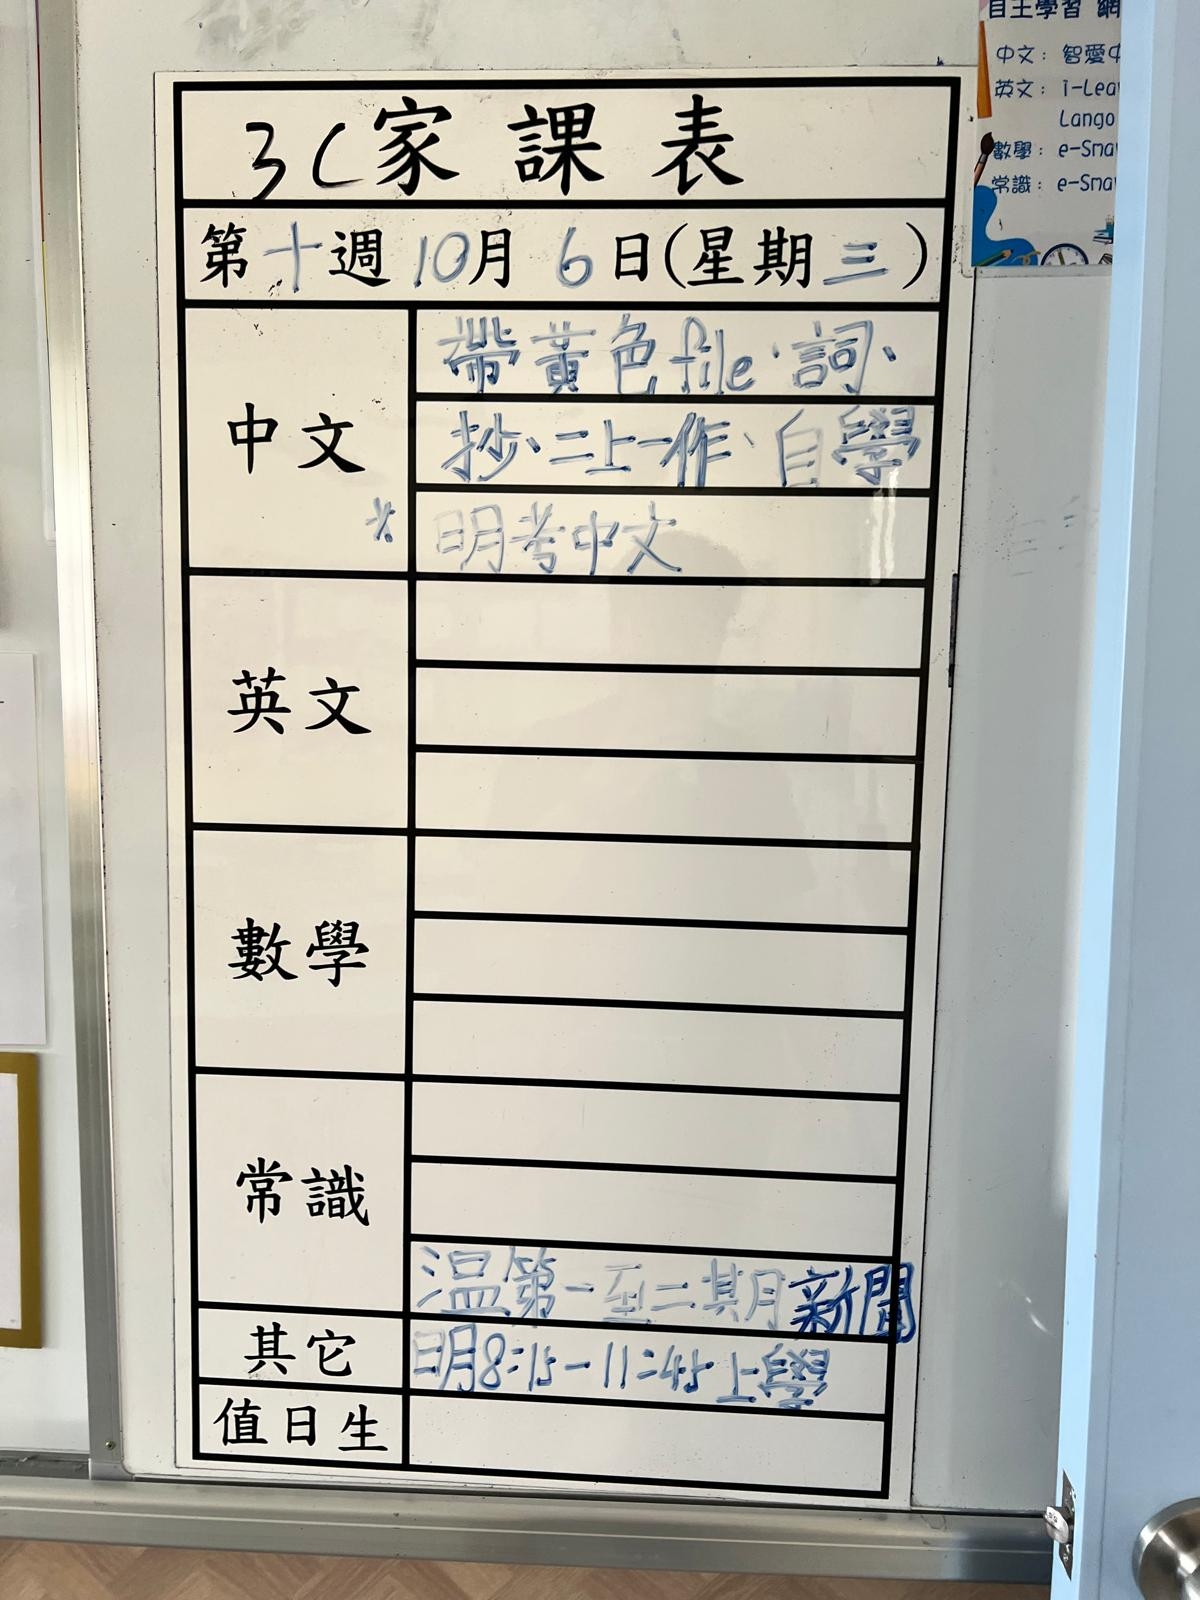 自主學習 網
中文： 智愛中
英文： i-Lear
Lango
數學： e-Smar
常識： e-Smar
3C家課表
第十週10月6日(星期三)
中文
帶黃色file、詞、
抄、二上一作、自學
* 明考中文
英文
數學
常識
温第一至二其月新聞
其它
明8:15-11:45上學
值日生